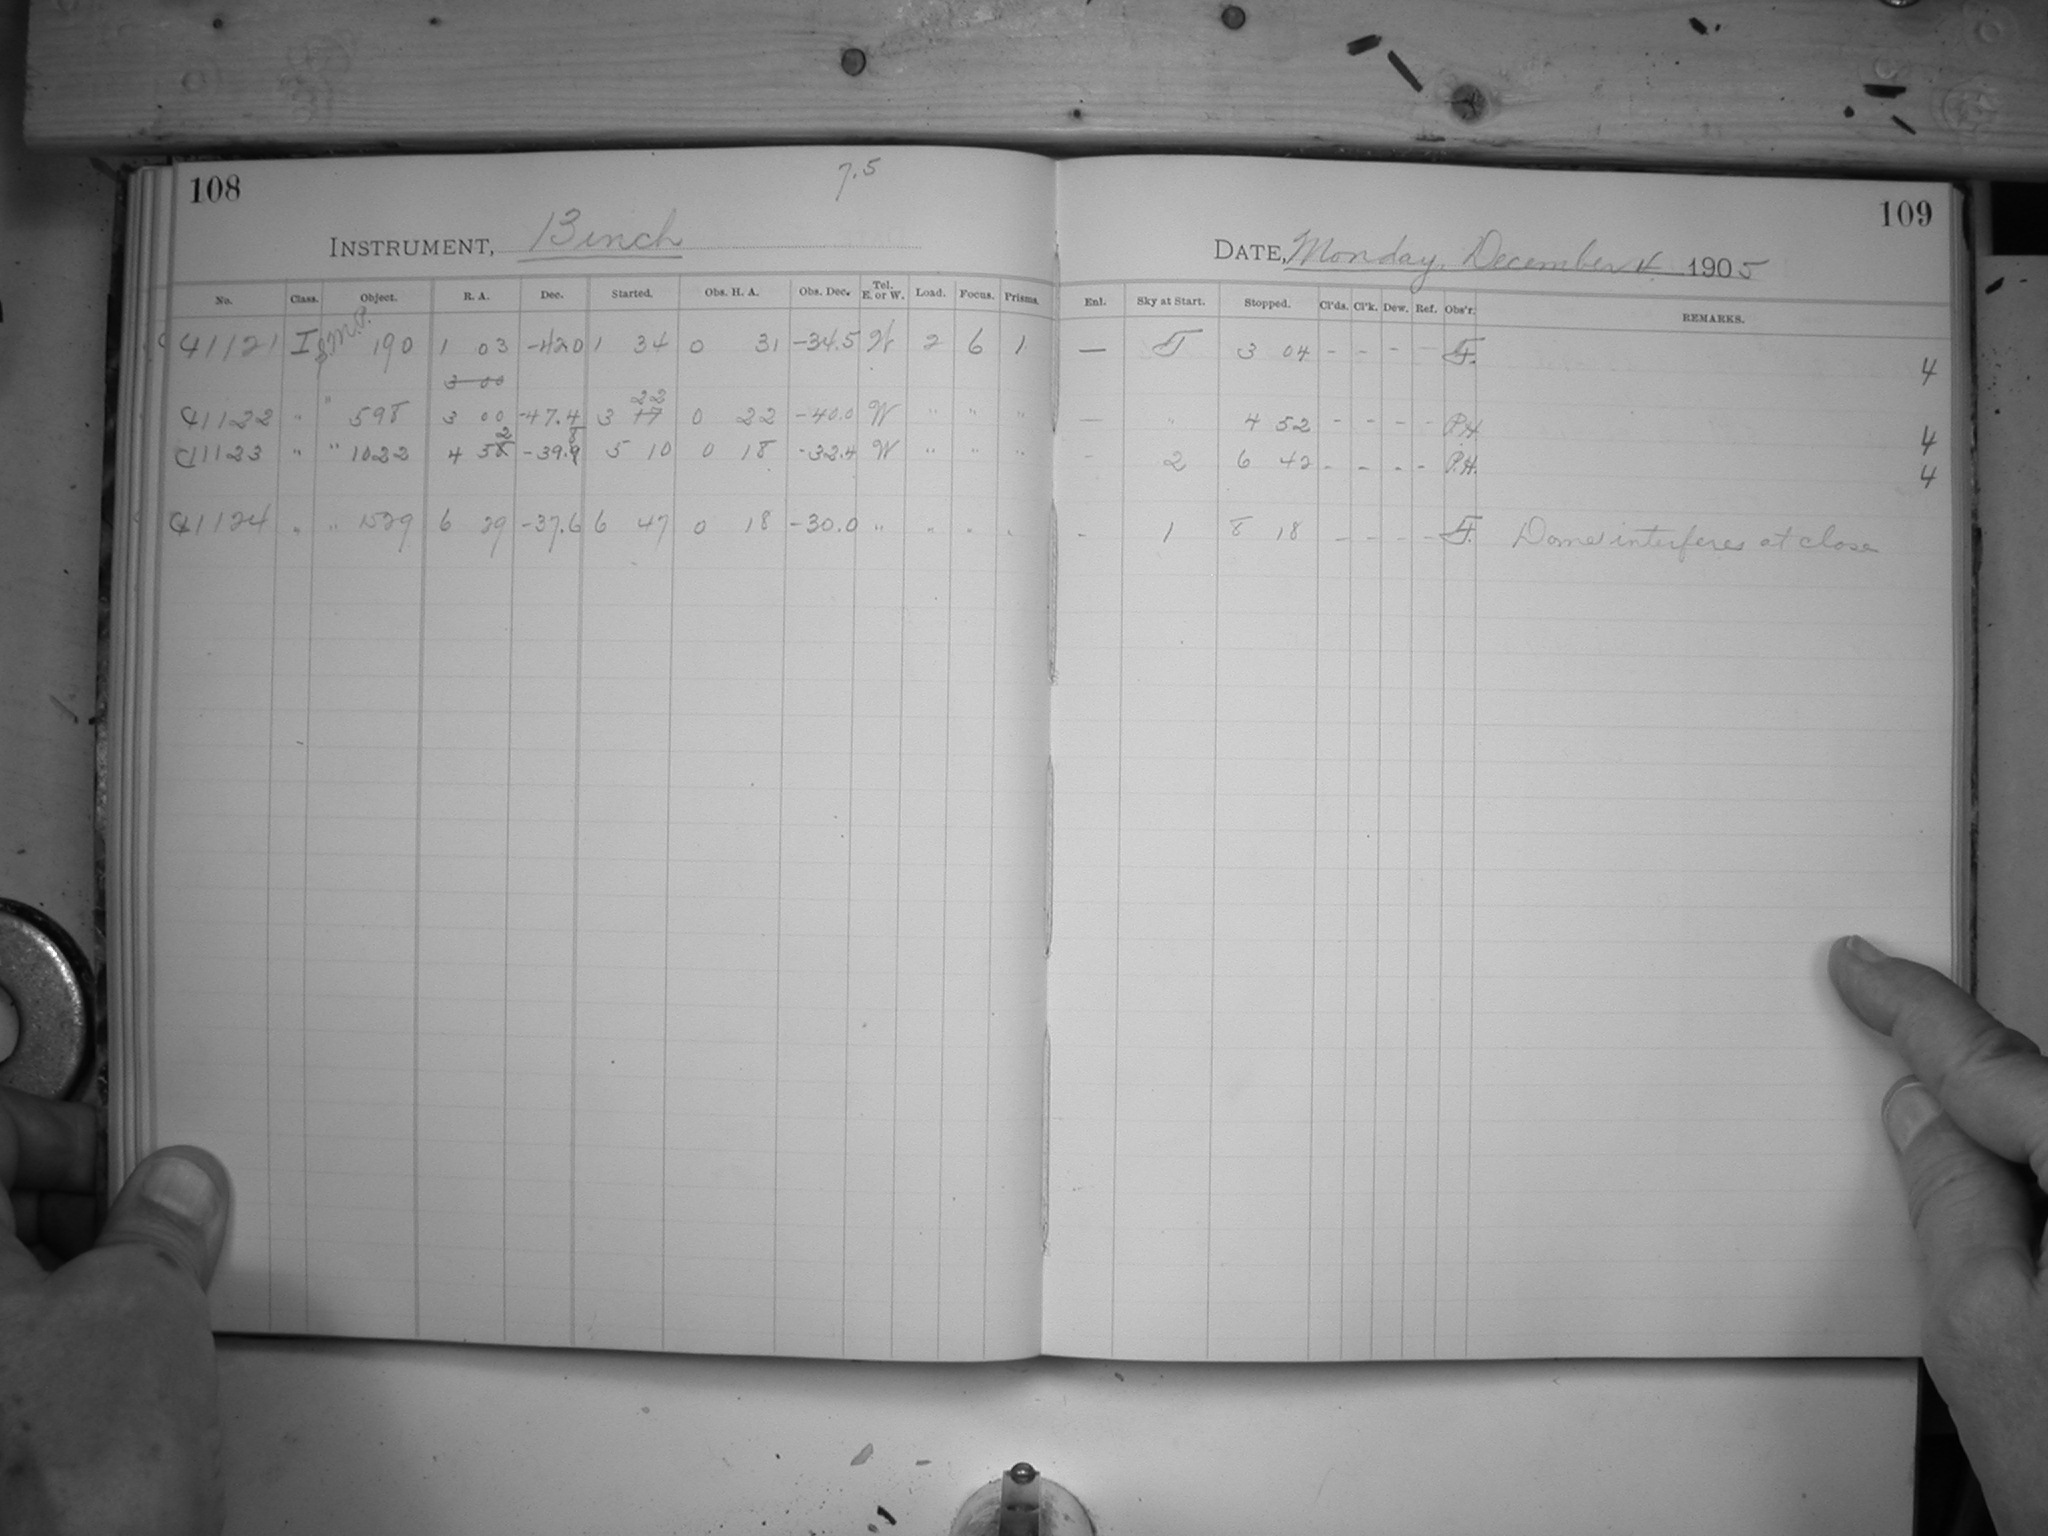 108
7.5
INSTRUMENT, 13 inch
No. Class. Object. R. A. Dec. Started. Obs. H. A. Obs. Dec. Tel. E. or W. Load. Focus. Prisms.
41121 I 190 1 03 -42.0 1 34 0 31 -34.5 W 2 6 1
3 00
22
41122 " " 598 3 00 -47.4 3 17 0 22 -40.0 W " " "
2 8
41123 " " 1022 4 58 -39.9 5 10 0 18 -32.4 W " " "
41124 " " 1529 6 29 -37.6 6 47 0 18 -30.0 " " " "
109
DATE, Monday, December 4 1905
Enl. Sky at Start. Stopped. Cl'ds. Cl'k. Dew. Ref. Obs'r. REMARKS.
— 3 04 - - - -
4
— " 4 52 - - - - P.H.
4
- 2 6 42 - - - - P.H.
4
- 1 8 18 - - - - Dome interferes at close